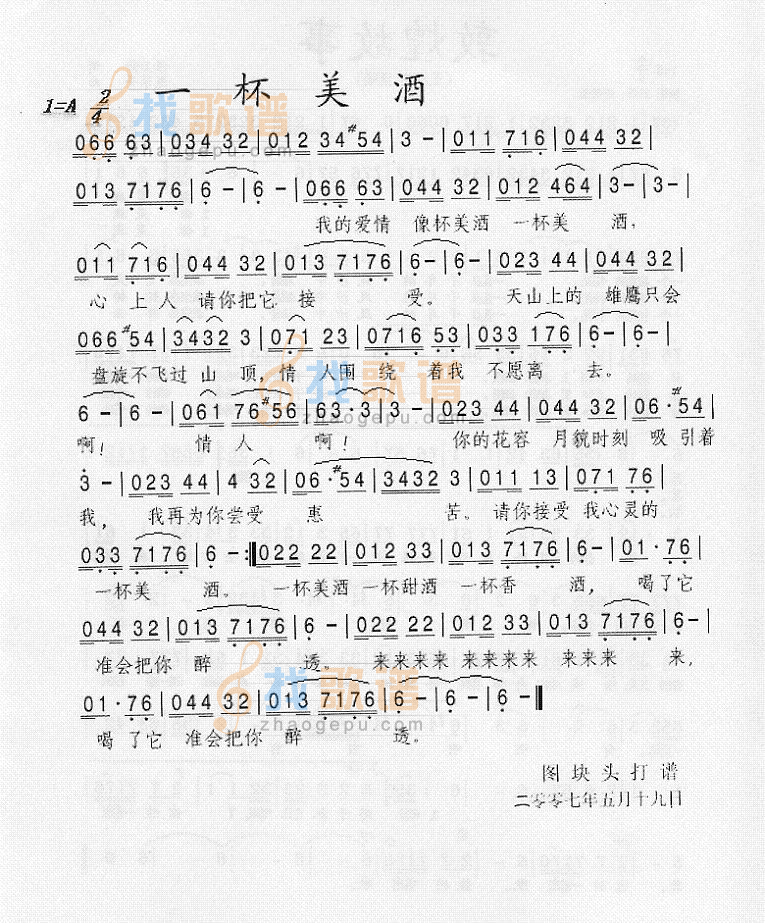 一 杯 美 酒
1=A 2/4
找歌谱
zhaogepu.com
066 63|034 32|012 34#54|3 -|011 716|044 32|
013 7176|6 -|6 -|066 63|044 32|012 464|3-|3-|
我的爱情 像杯美酒 一杯美 酒,
011 716|044 32|013 7176|6-|6-|023 44|044 32|
心 上 人 请你把它 接 受。 天山上的 雄鹰只会
066#54|3432 3|071 23|0716 53|033 176|6-|6-|
盘旋不飞过 山 顶,情 人围 绕 着我 不愿离 去。
找歌谱
zhaogepu.com
6 -|6 -|061 76#56|63·3|3-|023 44|044 32|06·#54|
啊! 情 人 啊! 你的花容 月貌时刻 吸 引着
3 -|023 44|4 32|06·#54|3432 3|011 13|071 76|
我, 我再为你尝受 惠 苦。请你接受 我心灵的
033 7176|6 -:‖022 22|012 33|013 7176|6-|01·76|
一杯美 酒。 一杯美酒 一杯甜酒 一杯香 酒, 喝了它
044 32|013 7176|6-|022 22|012 33|013 7176|6-|
准会把你 醉 透。 来来来来 来来来来 来来来 来,
找歌谱
zhaogepu.com
01·76|044 32|013 7176|6 -|6 -|6 -‖
喝 了它 准会把你 醉 透。
图 块 头 打 谱
二零零七年五月十九日